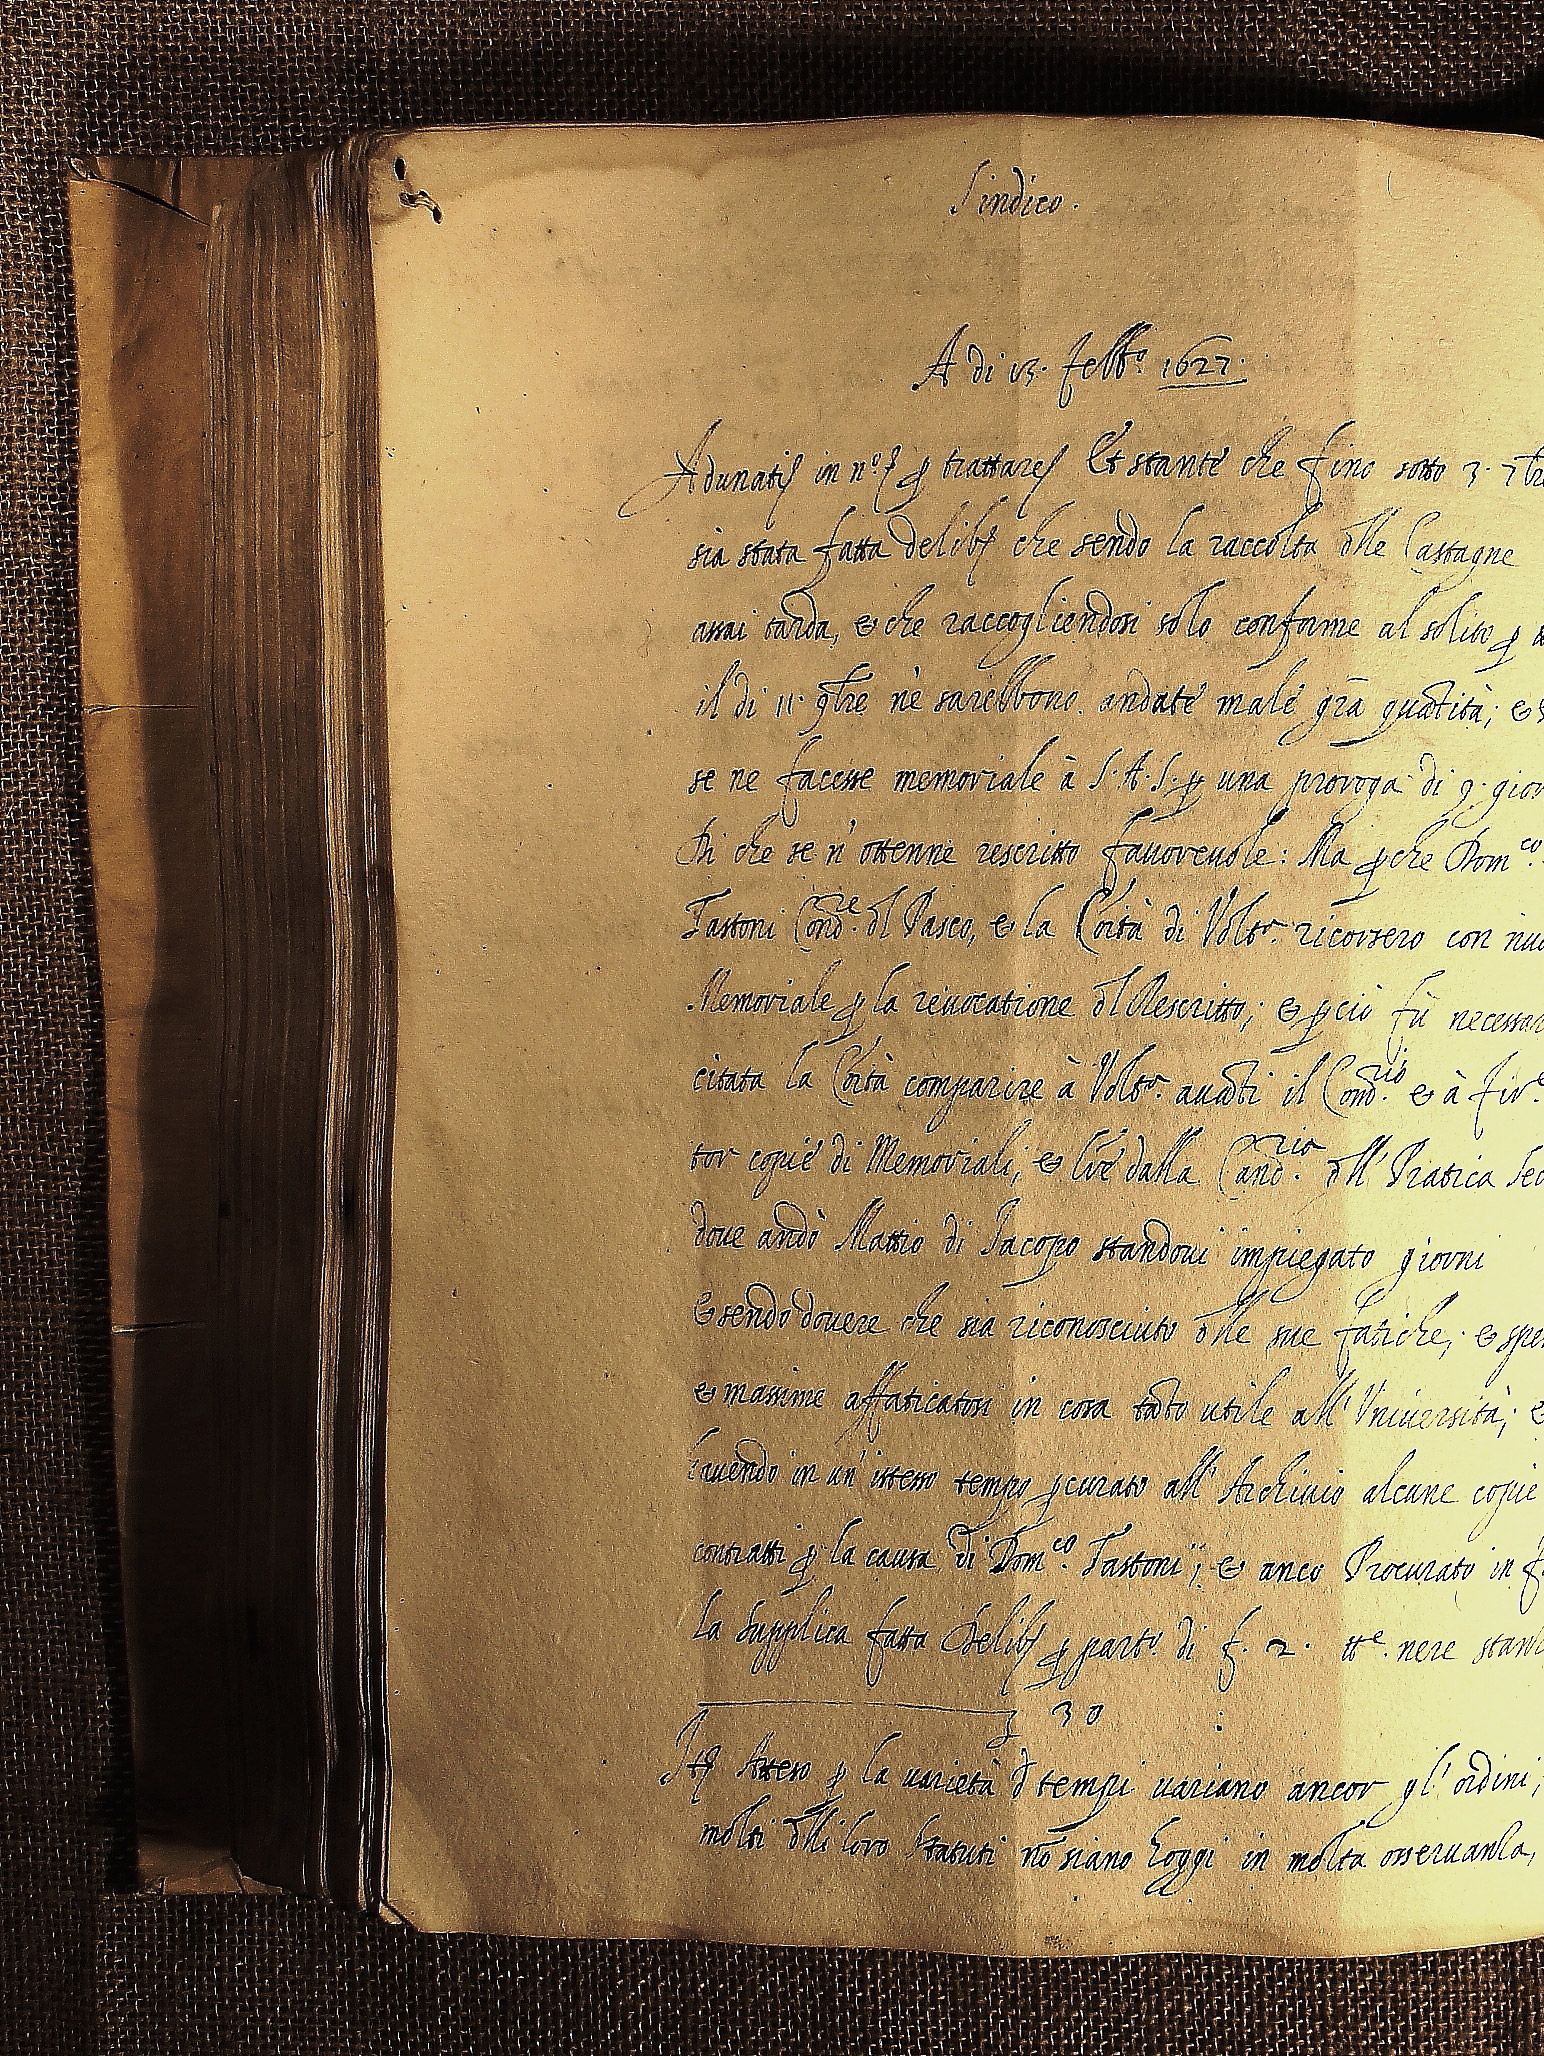 Sindico.
A di 13. febb.º 1627.
Adunati in nº. p trattare Et stante che fino sotto 3. 7bre
sia stata fatta delib che sendo la raccolta dlle Castagne
assai tarda, & che raccogliendosi solo conforme al solito p
il di 11. 9bre nè sarebbono. andate male grā quātità; &
se ne facesse memoriale à S. A. S. p una proroga di 9. gior
Di che se n' ottenne rescritto fauoreuole: Ma pche Dom.co
Tastoni Cond.re dl Pasco, & la Coītà di Volt.r ricorsero con nuo
Memoriale p la reuocatione dl Rescritto; & pciò fù necessar
citata la Coītà comparire à Volt.r auāti il Com.rio & à Fir.e
tor copie di Memoriali; & lrē dalla Canc.ria dll' Pratica Sec
doue andò Matteo di Jacopo standoui impiegato giorni
& sendo douere che sia riconosciuto dlle sue fatiche, & spe
& massime affaticatosi in cosa tāto utile all' Vniuersità; &
hauendo in un' istesso tempo pcurato all' Archiuio alcune copie
contratti p la causa di Dom.co Tastoni; & anco Procurato in
la Supplica fatta Delib p parto. di f. 2. tte. nere stant
30
Itē Atteso p la varietà d tempi uariano ancor gl' ordini;
molti dlli loro Statuti nō siano hoggi in molta osseruanza,